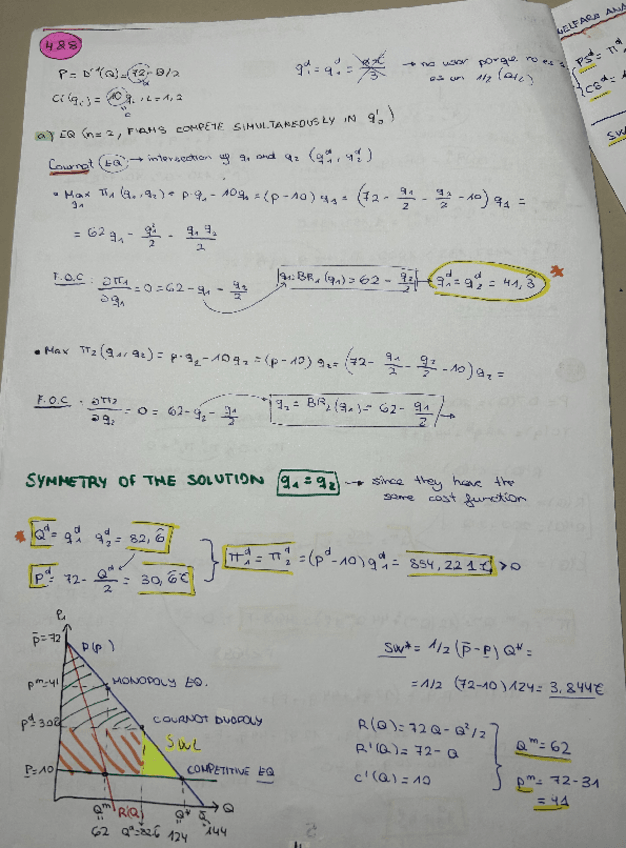 428
P = D⁻¹(Q) = 72 - Q/2
Ci(qi) = 10qi, i = 1, 2
→ no usar porque no es
es un 1/2 (Q/2)
WELFARE ANA
PSᵈ = Πᵈ
CSᵈ =
SW
a) EQ (n=2, FIRMS COMPETE SIMULTANEOUSLY IN q's)
Cournot EQ → intersection of q1 and q2 (q1ᵈ, q2ᵈ)
• Max π1(q1, q2) = p·q1 - 10q1 = (p-10) q1 = (72 - q1/2 - q2/2 - 10) q1 =
q1
= 62q1 - q1²/2 - q1q2/2
F.O.C: ∂π1/∂q1 = 0 = 62 - q1 - q2/2
q1 = BR1(q2) = 62 - q2/2 → q1ᵈ = q2ᵈ = 41,3̂ *
• Max π2(q1, q2) = p·q2 - 10q2 = (p-10) q2 = (72 - q1/2 - q2/2 - 10) q2 =
F.O.C: ∂π2/∂q2 = 0 = 62 - q2 - q1/2
q2 = BR2(q1) = 62 - q1/2 →
SYMMETRY OF THE SOLUTION q1 = q2 → since they have the
same cost function
* Qᵈ = q1ᵈ q2ᵈ = 82,6̂
Pᵈ = 72 - Qᵈ/2 = 30,6̂€
Π1ᵈ = Π2ᵈ = (pᵈ-10) q1ᵈ = 854,221€ > 0
P,
p̄ = 72
D(p)
pᵐ = 41
MONOPOLY EQ.
COURNOT DUOPOLY
SWL
P = 10
COMPETITIVE EQ
Qᵐ
R'(Q)
Q*
Q
62
124
144
SW* = 1/2 (p̄ - p) Q* =
= 1/2 (72-10) 124 = 3.844€
R(Q) = 72Q - Q²/2
R'(Q) = 72 - Q
C'(Q) = 10
Qᵐ = 62
pᵐ = 72 - 31
= 41